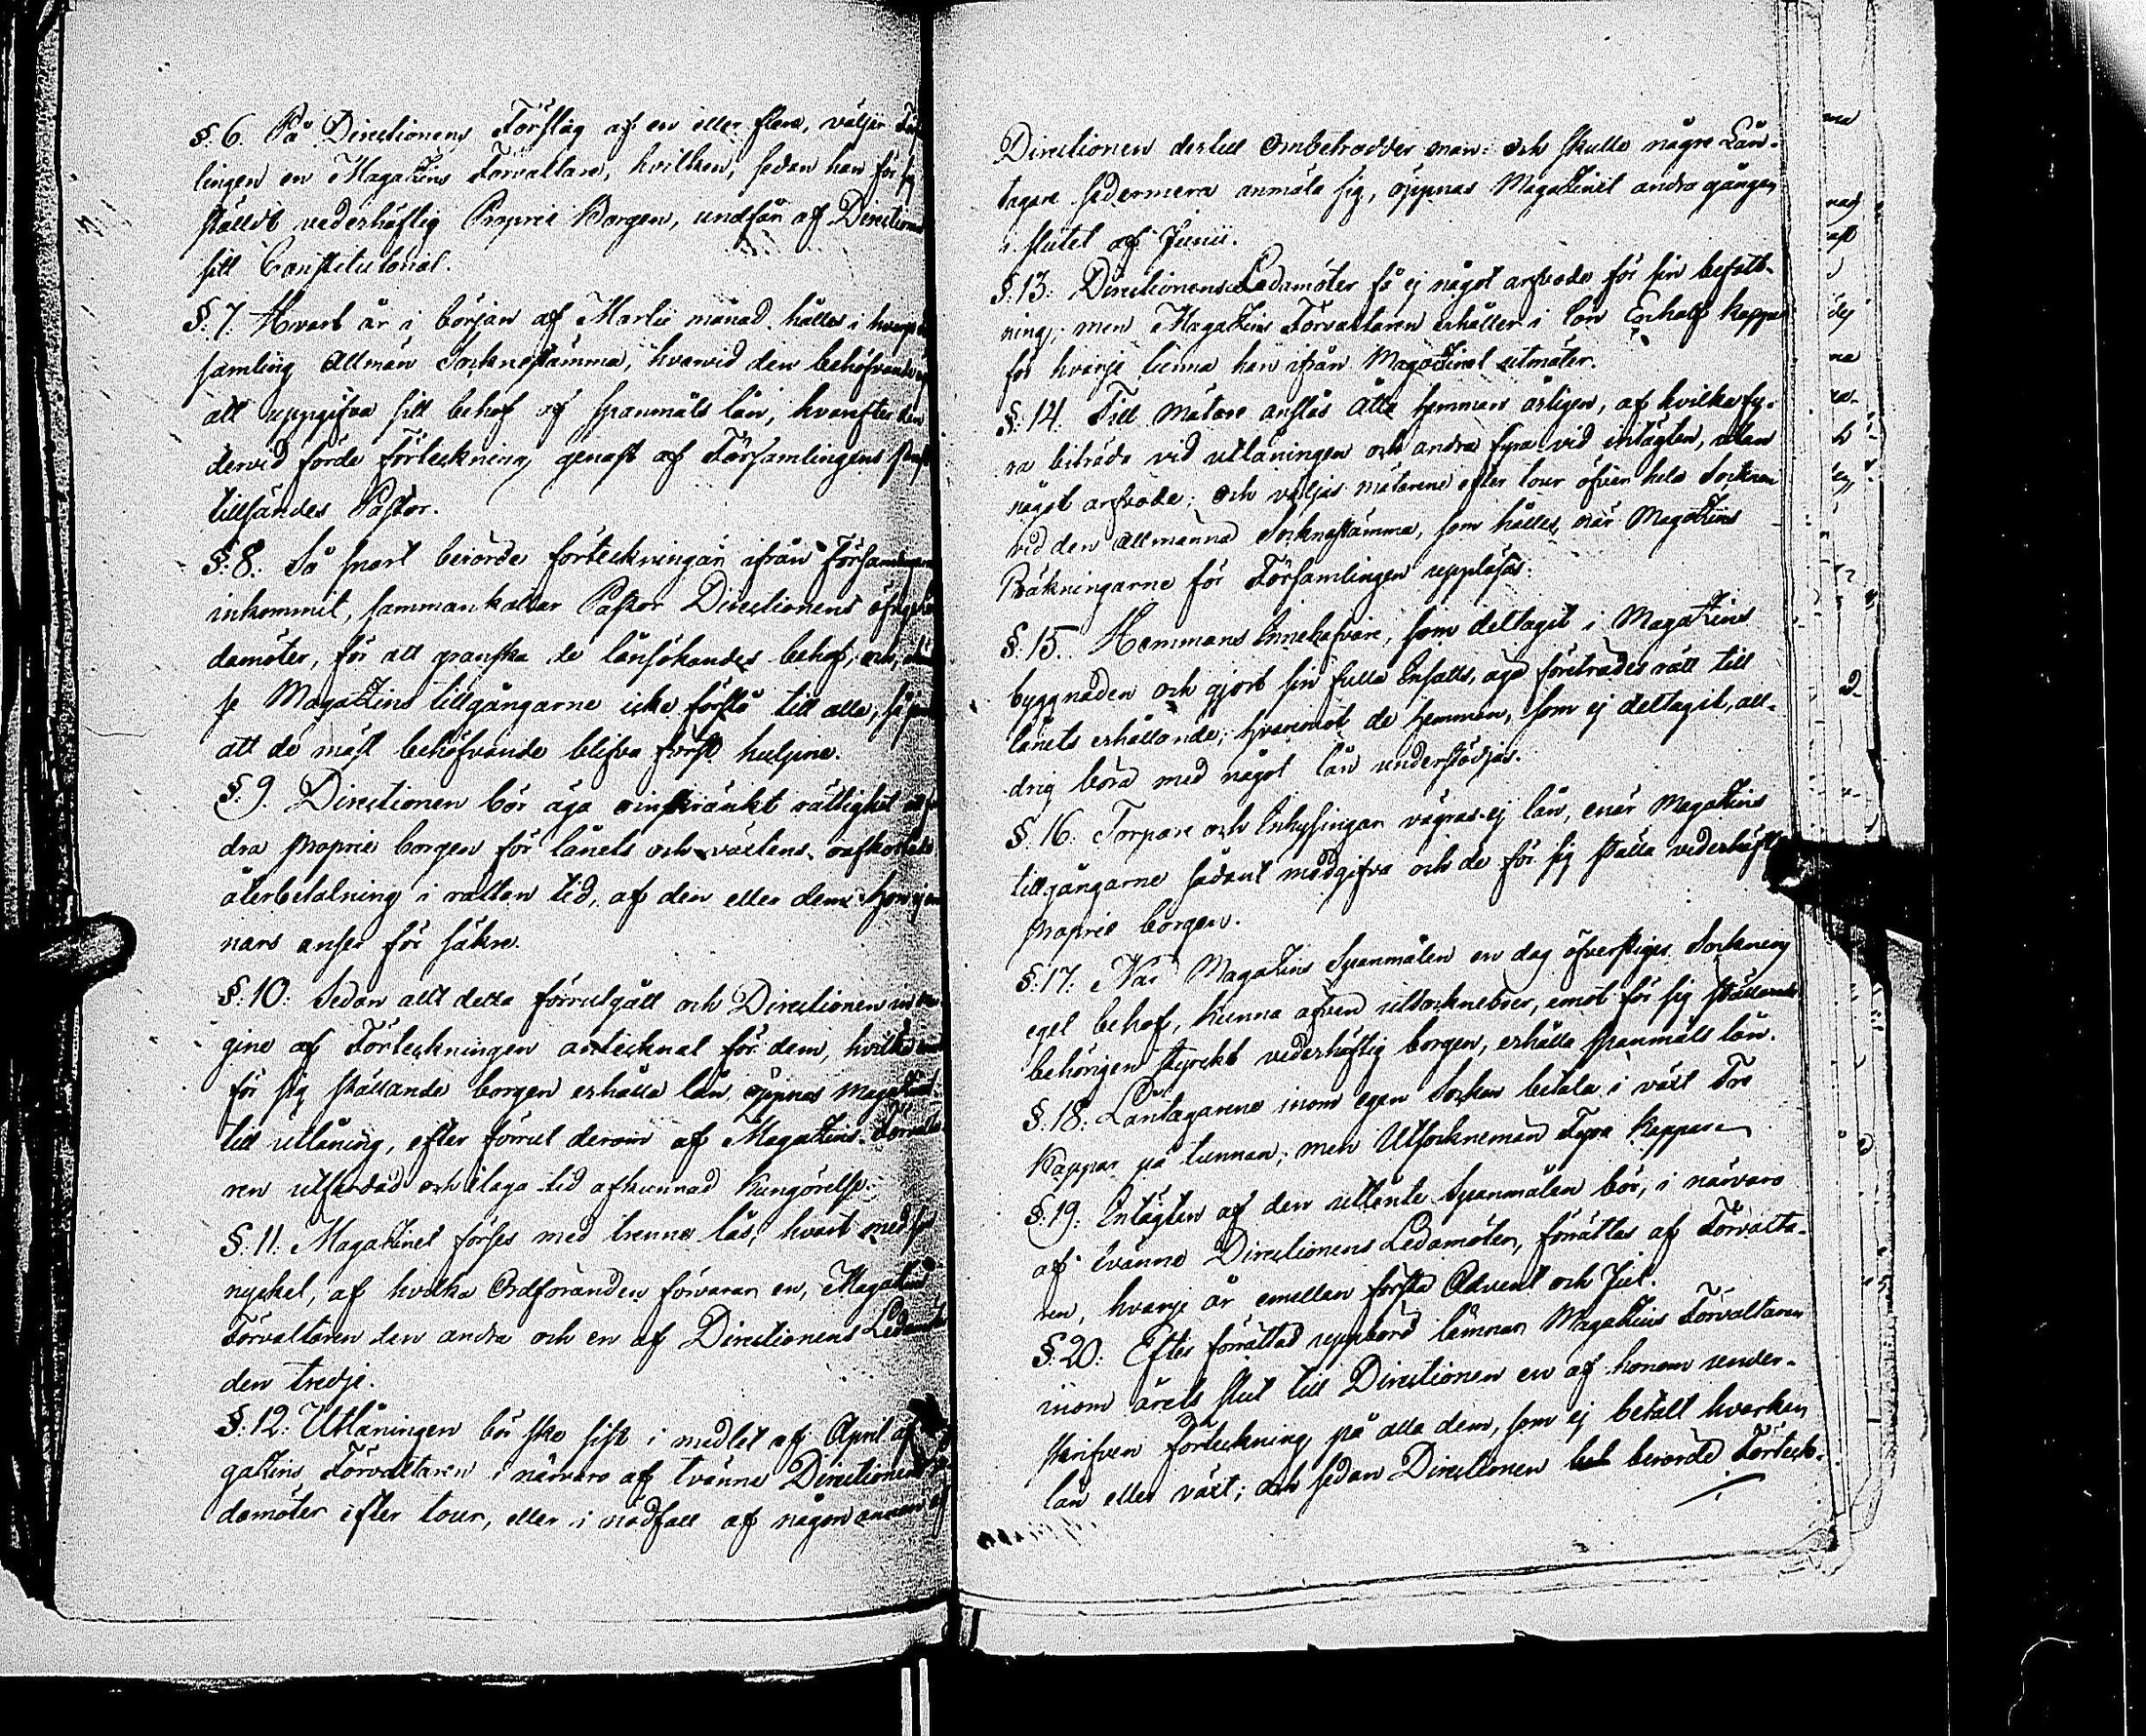 §. 6. På Directionens Förslag af en eller flera, väljer
lingen en Magazins Förvaltare, hvilken, sedan han för sig
ställdt vederhäftig Proprie Borgen, undfår af Directionen
sitt Constitutorial.
§. 7. Hvart år i början af Martii månad hålles i hvarje
samling Allmän Socknestämma, hvarvid den behöfvande
att uppgifva sitt behof af spanmåls lån, hvarefter den
dervid förde Förteckning genast af Församlingens
tillsändes Pastor.
§. 8. Så snart berörde förteckningar ifrån Församlingarne
inkommit, sammankallar Pastor Directionens öfrige
damöter, för att granska de lånsökandes behof; och,
se Magazins tillgångarne icke förslå till alla,
att de mäst behöfvande blifva först hulpne.
§. 9. Directionen bör äga oinskränkt rättighet att
dra proprie borgen för lånets och växtens oafkortade
återbetalning i rättan tid, af den eller dem, hon ej
nars anser för säkre.
§. 10. Sedan allt detta förrutgått och Directionen
gine af Förteckningen antecknat för dem, hvilka
för sig ställande borgen erhålla lån, öppnas Magazinet
till utlåning, efter förrut derom af Magazins Förvalta
ren utfärdad och i laga tid afkunnad Kungörelse.
§. 11. Magazinet förses med trenne lås, hvart med
nyckel, af hvilka Ordföranden förvarar en, Magazins
Förvaltaren den andra och en af Directionens Ledamöter
den tredje.
§. 12. Utlåningen bör ske sist i medlet af April af
gazins Förvaltaren i närvaro af tvänne Directionens
damöter efter tour, eller i nödfall af någon annan af
Directionen dertill ombetrodder man: och skulle någre Lån-
tagare sedermera anmäla sig, öppnas Magazinet andra gången
i slutet af Junii.
§. 13. Directionens Ledamöter få ej något arfvode för sin befatt-
ning; men Magazins Förvaltaren erhåller i lön En half kappe
för hvarje tunna han ifrån Magazinet utmäter.
§. 14. Till Mätare anslås Åtta hemman årligen, af hvilka fy-
ra biträda vid utlåningen och andra fyra vid intägten, utan
något arfvode; och väljas mätarene efter tour öfver hela Socknen
vid den allmänna Socknestämma, som hålles, när Magazins
Räkningarne för Församlingen uppläsas.
§. 15. Hemmans Innehafvare, som deltagit i Magazins
byggnaden och gjort sin fulla Insatts, äga företrädes rätt till
lånets erhållande; hvaremot de hemman, som ej deltagit, ald-
drig böra med något lån understödjas.
§. 16. Torpare och Inhysingar vägras ej lån, enär Magazins
tillgångarne sådant medgifva och de för sig ställa vederhäftig
proprie borgen.
§. 17. När Magazins Spanmålen en dag öfverstiger Socknens
eget behof, kunna äfven utsockneboer, emot för sig ställande
behörigen styrkt vederhäftig borgen, erhålla spanmåls lån.
§. 18. Låntagarene inom egen Socken betala i växt Tre
Kappar på tunnan; men Utsocknemän Fyra Kappar.
§. 19. Intägten af den utlånte Spanmålen bör, i närvaro
af tvänne Directionens Ledamöter, förrättas af Förvalta-
ren, hvarje år emellan första Advent och Jul.
§. 20. Efter förrättad uppbörd lämnar Magazins Förvaltaren
inom årets slut till Directionen en af honom under-
skrifven Förteckning på alla dem, som ej betalt hvarken
lån eller växt; och sedan Directionen berörde Förteck-